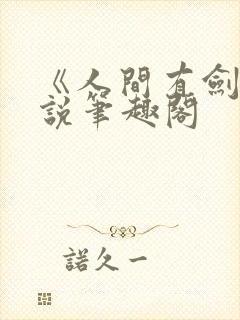 《人間有劍
說筆趣閣
諾久一